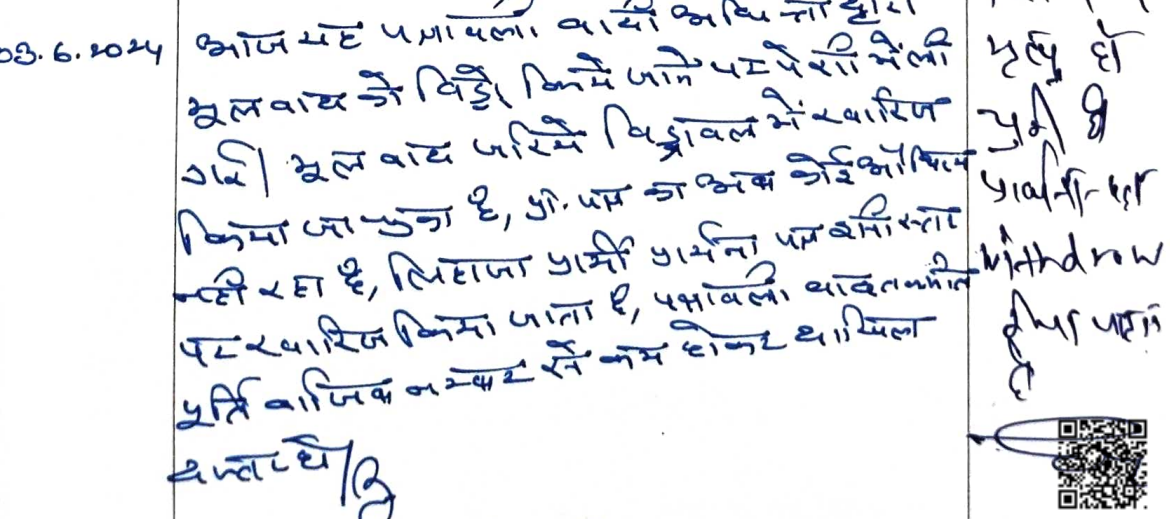 03.6.2024 आज यह पत्रावली वादी अधि. द्वारा
मूल वाद को विड्रो किये जाने पर पेशी में ली
गई। मूल वाद जरिये विड्रावल में खारिज
किया जा चुका है, प्रा. पत्र का अब कोई औचित्य
नही रहा है, लिहाजा प्रार्थी प्रार्थना पत्र इसी स्तर
पर खारिज किया जाता है, पत्रावली बाद तकमील
पूर्ति वाजिब नम्बर से कम होकर दाखिल
दफ्तर हो।
मृत्यु हो
चुकी है
प्रार्थना पत्र
withdraw
है